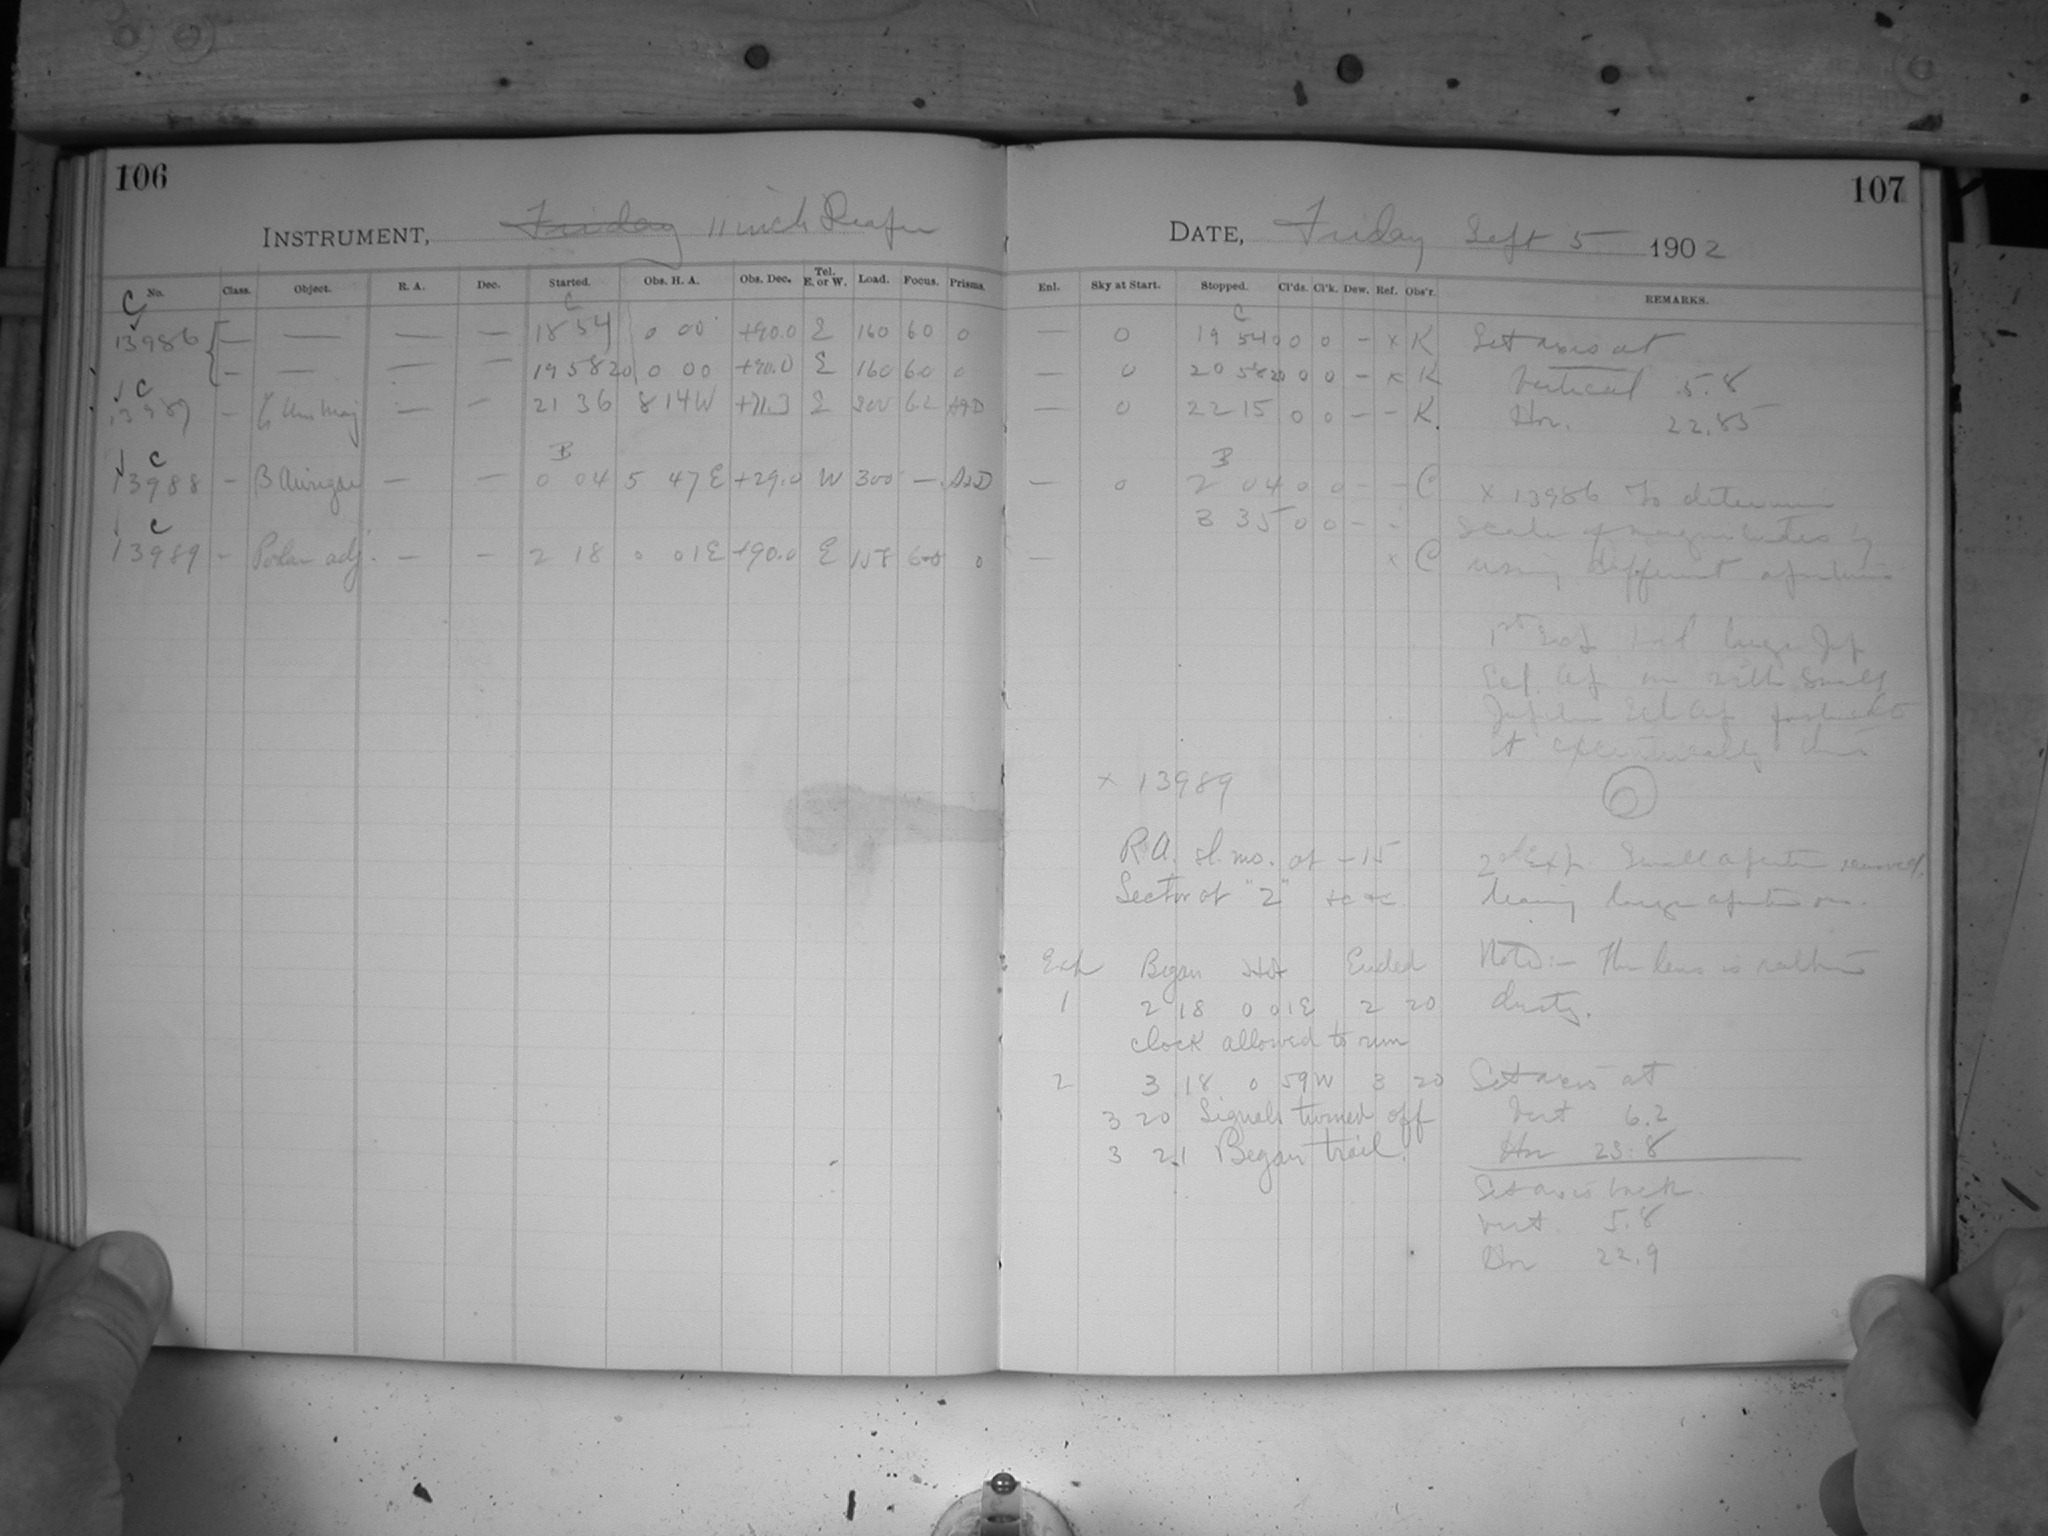 106
INSTRUMENT, Friday 11 inch Draper
No. Class. Object. R. A. Dec. Started. Obs. H. A. Obs. Dec. Tel. E. or W. Load. Focus. Prisms.
C C
13986 — — — — 18 54 0 00 +90.0 E 160 60 0
— — — — 19 58 20 0 00 +90.0 E 160 60 0
C
13987 — ζ Urs Maj — — 21 36 8 14W E 62
C B
13988 — β Aurigae — — 0 04 5 47E +29.0 W 300 —
C
13989 — Polar adj. — — 2 18 0 01E +90.0 E 0
107
DATE, Friday Sept 5 1902
Enl. Sky at Start. Stopped. Cl'ds. Cl'k. Dew. Ref. Obs'r. REMARKS.
C
— 0 19 54 0 0 0 — x K Set axis at
— 0 20 58 20 0 0 — x K Vertical 5.8
— 0 22 15 0 0 — — K Hor. 22.85
B
— 0 2 04 0 0 — — C x 13986 To determine
3 35 0 0 — — scale of magnitudes by
— x C using different apertures
1st Exp. had large Jup
Ecl. Ap. on with small
Jupiter Ecl Ap. fastened to
it excentrically thus
x 13989
R.A. sl. mo. at -15
Sector at "2"
2nd Exp. Small aperture removed,
leaving large aperture on.
Exp Began HA Ended
1 2 18 0 01E 2 20
clock allowed to run
2 3 18 0 59W 3 20
3 20 Signals turned off
3 21 Began trail.
Note:— The lens is rather
dusty.
Set axis at
Vert 6.2
Hor 23.8
Set axis back
Vert. 5.8
Hor 22.9